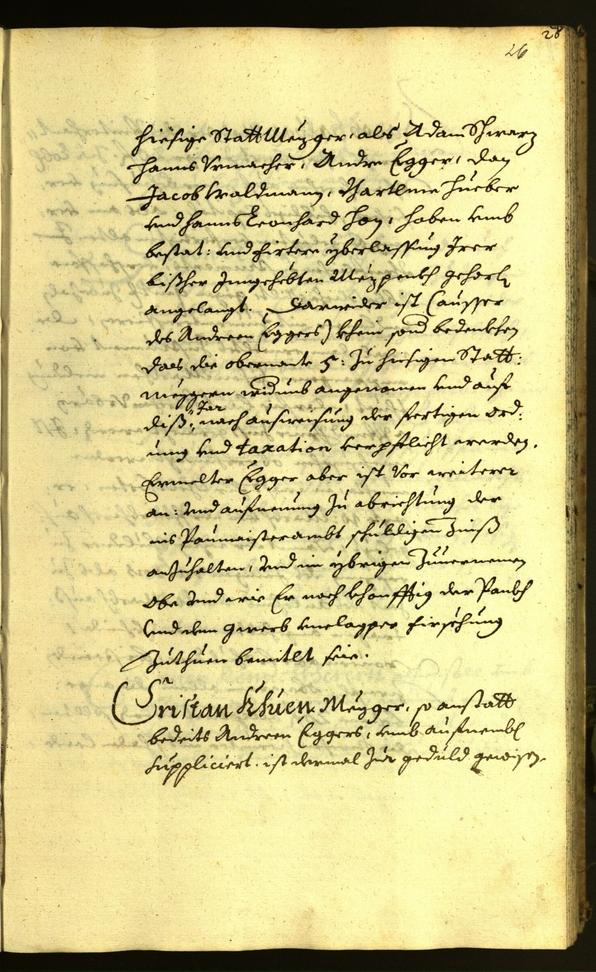 28
26
hiesige Statt Mezger, als Adam Schwarz
Hanns Urmacher, Andre Egger, Dan
Jacob Waldmann, Bartlmee Hueber
und Hanns Leonhard Hoy, haben umb
bestat: und firtere yberlassung Irer
bißher Inngehebten Mezpenkh gehorsl.
angelangt. Darwider ist (ausser
des Andreen Eggers) khein sond bedenkhen
daß die obernante 5: zu hiesigen Statt:
mezgern widumb angenomen und auf
diß Jar, nach ausweisung der fertigen Ord:
nung und taxation verpflicht werden.
Ermelter Egger aber ist vor weiterer
an: und aufnemung zu abrichtung der
ins Paumaisterambt schuldigen Zinß
anzuhalten, und im ybrigen Zuvernemen
Obe und wie Er noch khonfftig der Pankh
und dem gwerb fürsehung
Zuthuen bemitlt seie.
Cristan Khuen Mezger, so anstatt
bedeits Andreen Eggers, umb aufnembl
suppliciert. ist dermal Zur geduld gewisen.